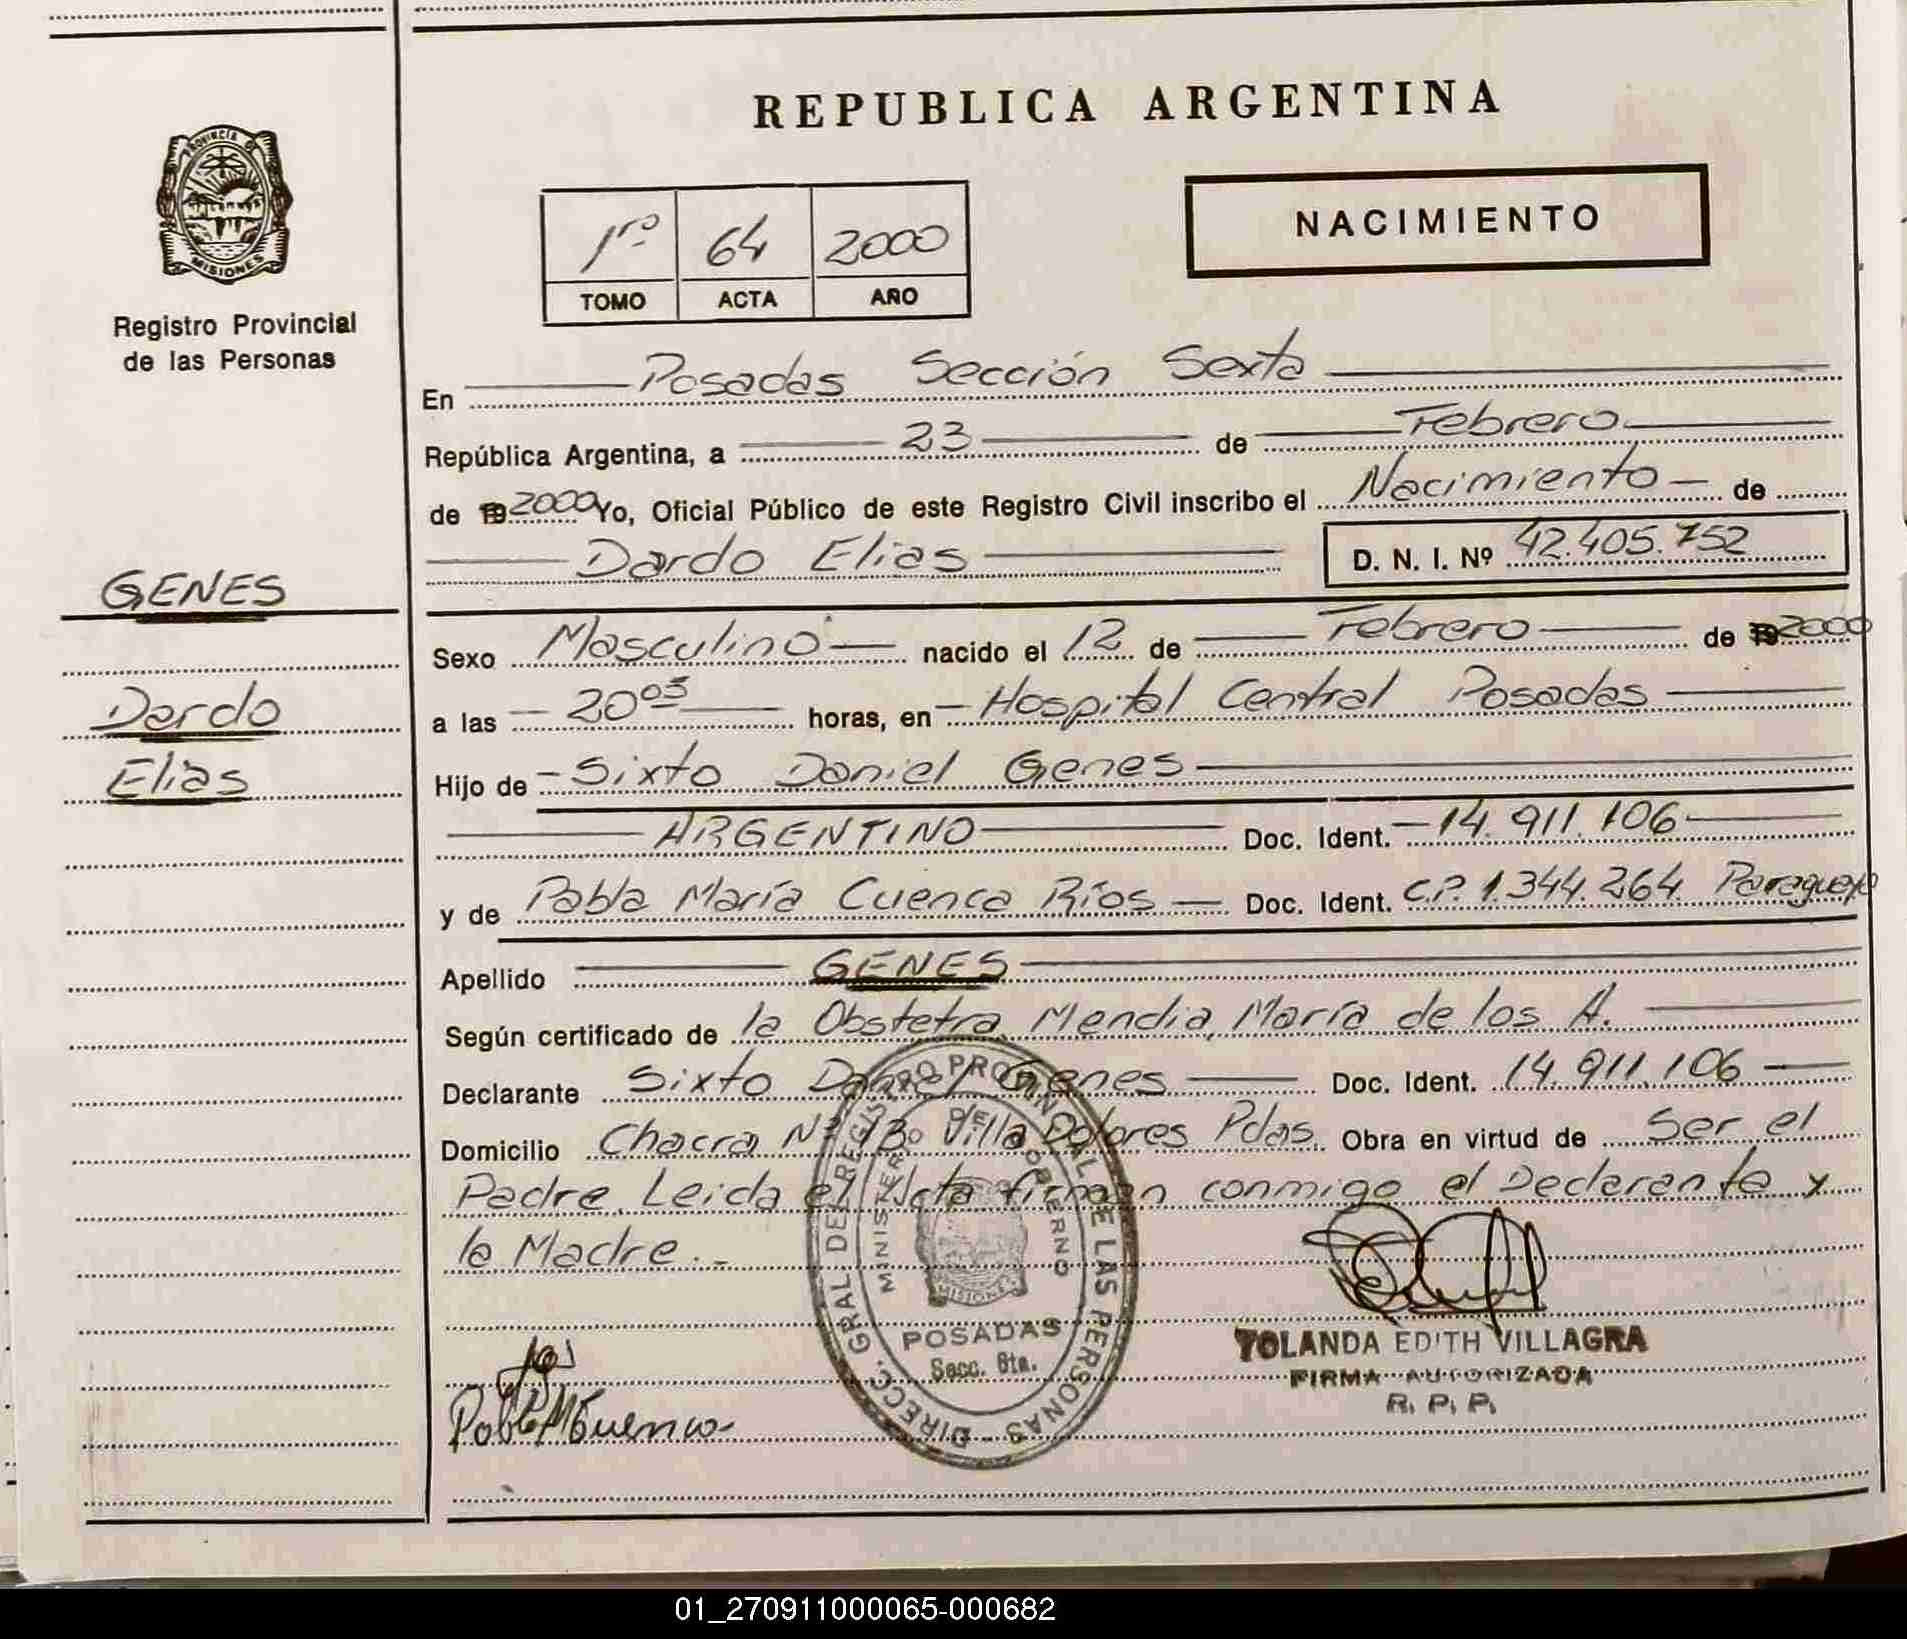 REPUBLICA ARGENTINA
PROVINCIA DE
MISIONES
Registro Provincial
de las Personas
1ro 64 2000
TOMO ACTA AÑO
NACIMIENTO
En Posadas Sección Sexta
República Argentina, a 23 de Febrero
de 19 2000 Yo, Oficial Público de este Registro Civil inscribo el Nacimiento de
Dardo Elias D. N. I. Nº 42.405.752
GENES
Dardo
Elias
Sexo Masculino nacido el 12 de Febrero de 19 2000
a las 20 05 horas, en Hospital Central Posadas
Hijo de Sixto Daniel Genes
ARGENTINO Doc. Ident. 14.911.106
y de Pabla María Cuenca Ríos Doc. Ident. C.P. 1.344.264 Paraguaya
Apellido GENES
Según certificado de la Obstetra Mendia María de los A.
Declarante Sixto Daniel Genes Doc. Ident. 14.911.106
Domicilio Chacra Nº 130 Villa Dolores Pdas. Obra en virtud de Ser el
Padre. Leida el Acta firman conmigo el Declarante y
la Madre.-
DIRECC. GRAL DEL REGISTRO PROVINCIAL DE LAS PERSONAS
MINISTERIO DE GOBIERNO
MISIONES
POSADAS
Secc. 6ta.
YOLANDA EDITH VILLAGRA
FIRMA AUTORIZADA
R. P. P.
Pabla M Cuenca
01_270911000065-000682